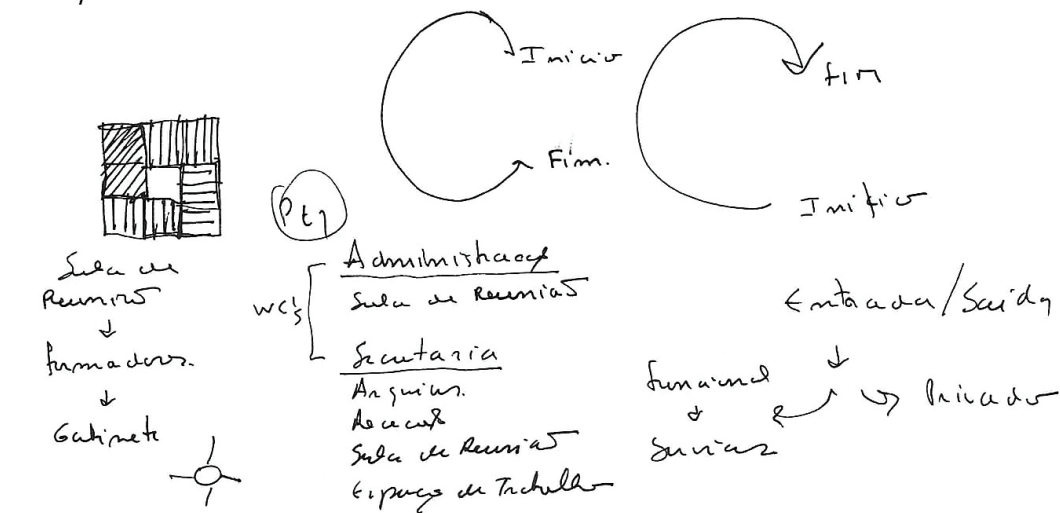 Inicio
Fim.
fim
Inicio
Sala de
Reunião
formadores.
Gabinete
Pty
WC's
Administração
Sala de Reunião
Secretaria
Arquivo.
Sala de Reunião
Espaço de Trabalho
Entrada/Saída
funcional
Serviço
Privado